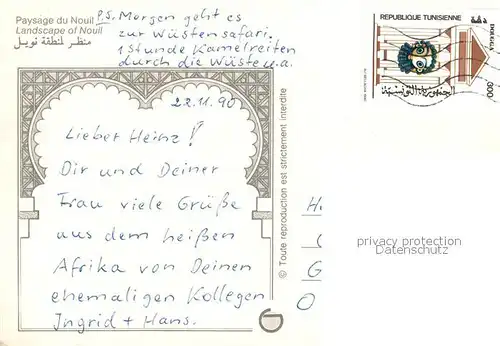 Paysage du Nouil
Landscape of Nouil
منظر لمنطقة نويل
P.S. Morgen geht es
zur Wüstensafari.
1 Stunde Kamelreiten
durch die Wüste u.a.
22.11.90
Lieber Heinz!
Dir und Deiner
Frau viele Grüße
aus dem heißen
Afrika von Deinen
ehemaligen Kollegen
Ingrid + Hans.
© Toute reproduction est strictement interdite
REPUBLIQUE TUNISIENNE
الجمهورية التونسية
privacy protection
Datenschutz
H
G
O